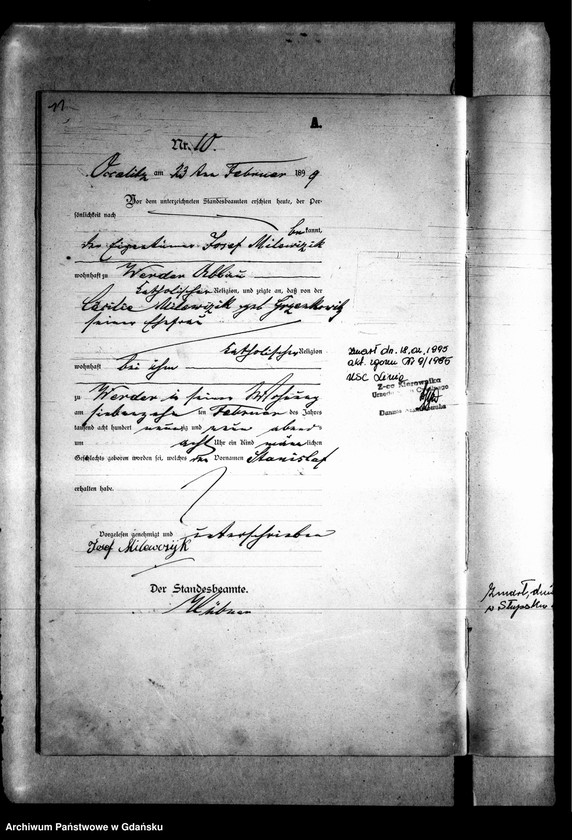 11.
A.
Nr. 10.
am 23 ten Februar 1899
Vor dem unterzeichneten Standesbeamten erschien heute, der Per-
sönlichkeit nach
bekannt,
der Josef Milewizik
wohnhaft zu Werder Abbau
katholischer Religion, und zeigte an, daß von der
Cäcilie Milewizik geb
seiner Ehefrau
katholischer Religion
wohnhaft bei ihm
zu Werder in seiner Wohnung
am siebzehn ten Februar des Jahres
tausend acht hundert neunzig und neun abends
um acht Uhr ein Kind männlichen
Geschlechts geboren worden sei, welches den Vornamen Stanislaf
erhalten habe.
Vorgelesen genehmigt und unterschrieben
Josef Milewczyk
Der Standesbeamte.
Hübner
zmarł dn. 18.01.1985
akt zgonu Nr 9/1985
USC
Z-ca Kierownika
Zmarł, dni
w Słupsku
Archiwum Państwowe w Gdańsku